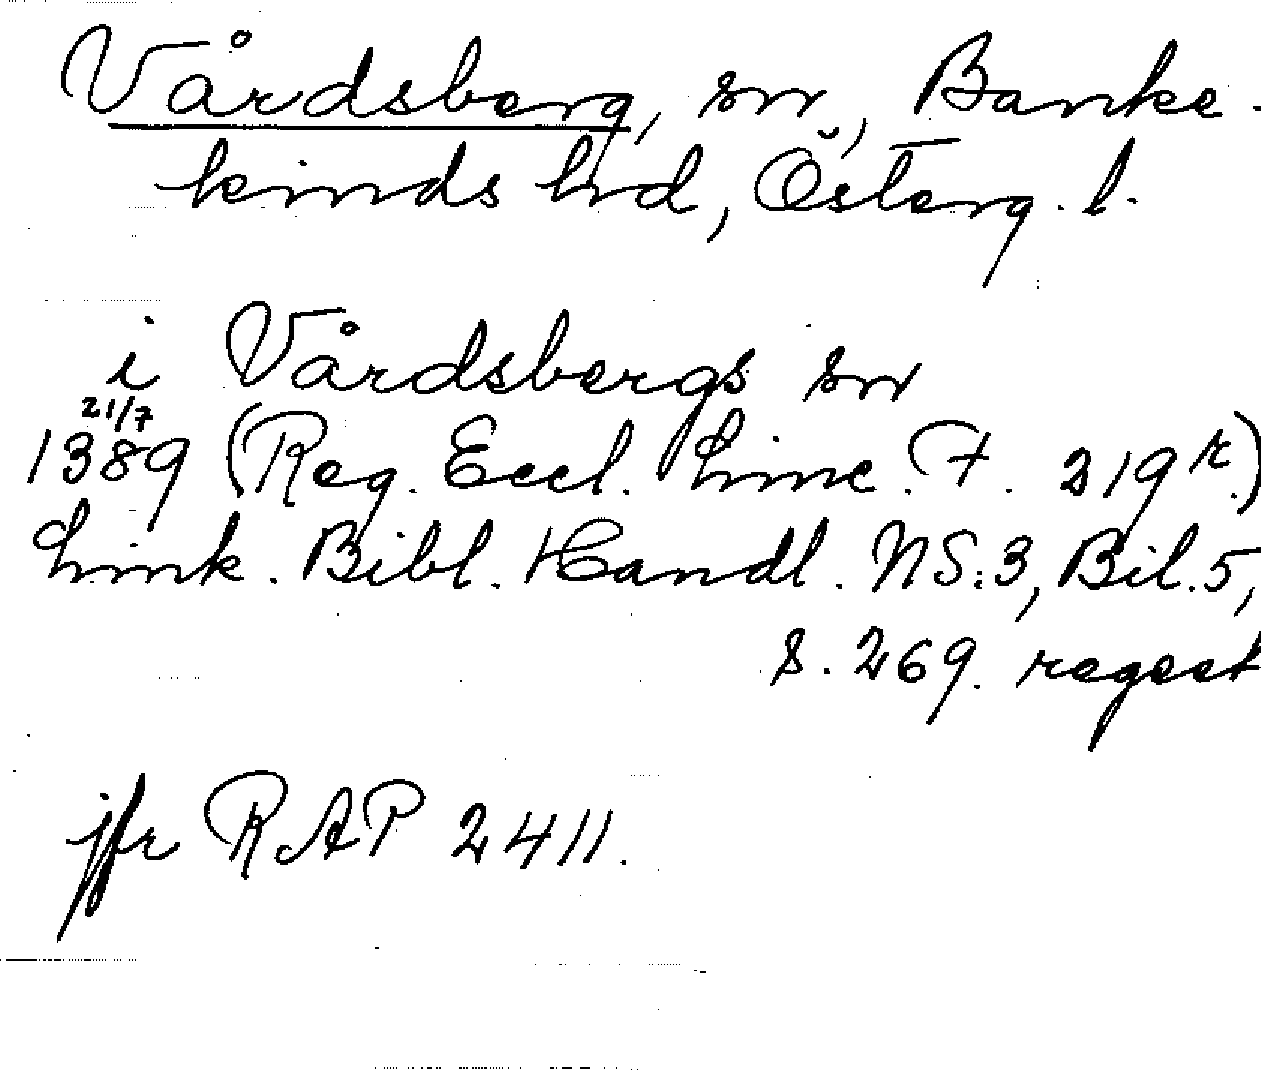 Vårdsberg, sn, Banke-
kinds hd, Österg. l.
i Vårdsbergs sn
21/7
1389 (Reg. Eccl. Linc. F. 219 r.)
Link. Bibl. Handl. NS:3, Bil. 5,
s. 269. regest
jfr RAP 2411.